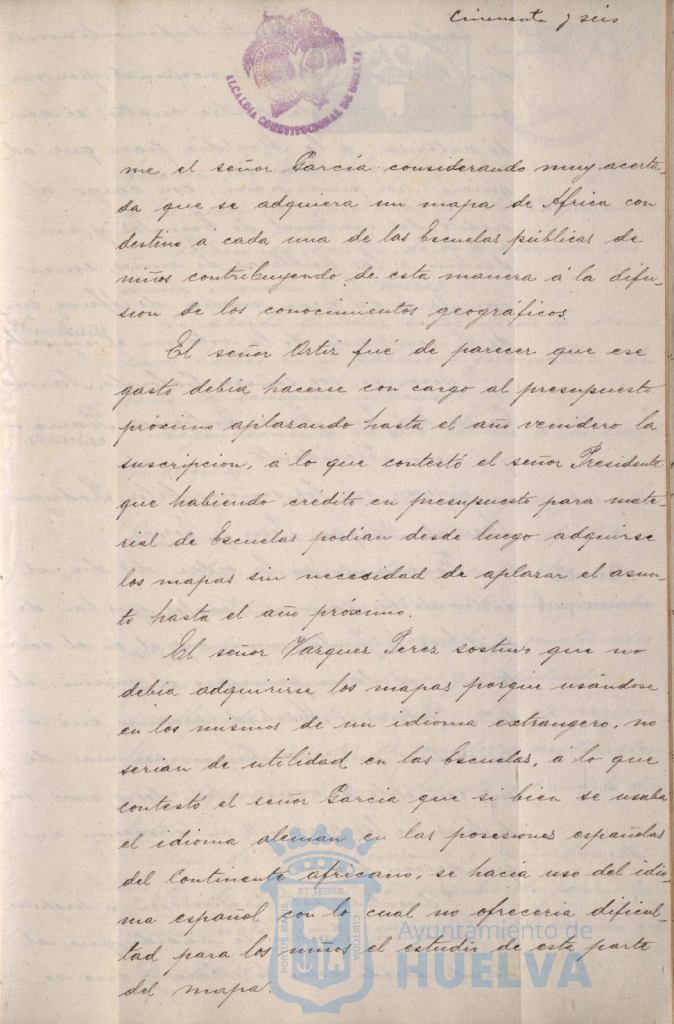 Cincuenta y seis
ALCALDIA CONSTITUCIONAL DE HUELVA
me, el señor García considerando muy acerta-
da que se adquiera un mapa de Africa con
destino á cada una de las Escuelas públicas de
niños contribuyendo de esta manera á la difu-
sion de los conocimientos geográficos.
El señor Ortiz fué de parecer que ese
gasto debia hacerse con cargo al presupuesto
próximo aplazando hasta el año venidero la
suscripcion, á lo que contestó el señor Presidente
que habiendo crédito en presupuesto para mate-
rial de Escuelas podian desde luego adquirirse
los mapas sin necesidad de aplazar el asun-
to hasta el año próximo.
El señor Vazquez Perez sostuvo que no
debia adquirirse los mapas porque usándose
en los mismos de un idioma extrangero, no
serian de utilidad en las Escuelas, á lo que
contestó el señor García que si bien se usaba
el idioma aleman en las posesiones españolas
del Continente africano, se hacia uso del idio-
ma español con lo cual no ofreceria dificul-
tad para los niños el estudio de esta parte
del mapa.
PORTUS MARIS ET TERRÆ CUSTODIA
Ayuntamiento de
HUELVA